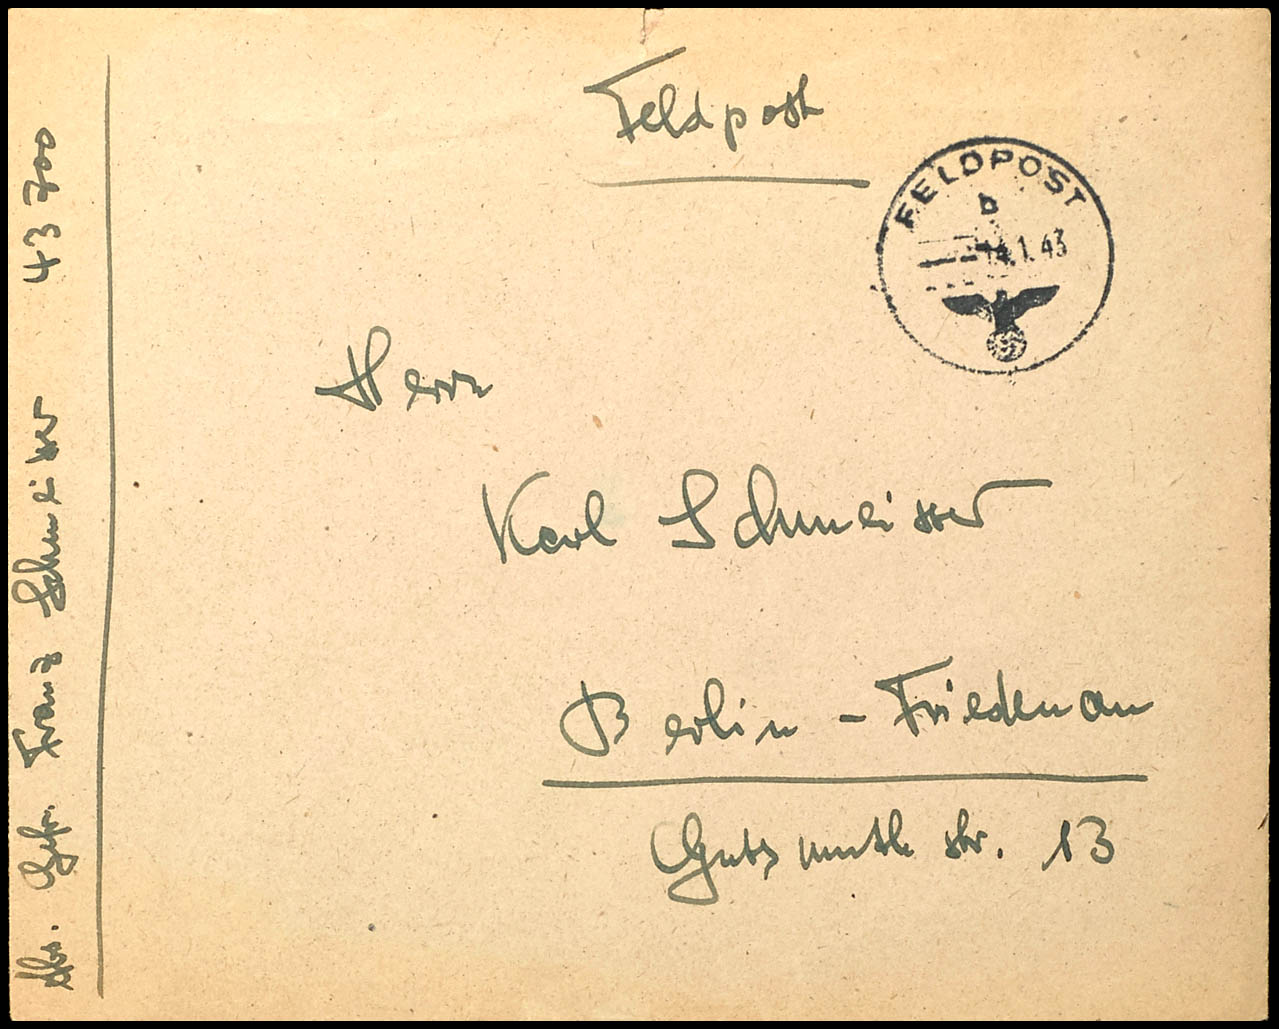 Feldpost
FELDPOST
b
14.1.43
Herrn
Karl Schmeisser
Berlin - Friedenau
Gutsmuthstr. 13
Abs. Gefr. Franz Schmeisser 43700